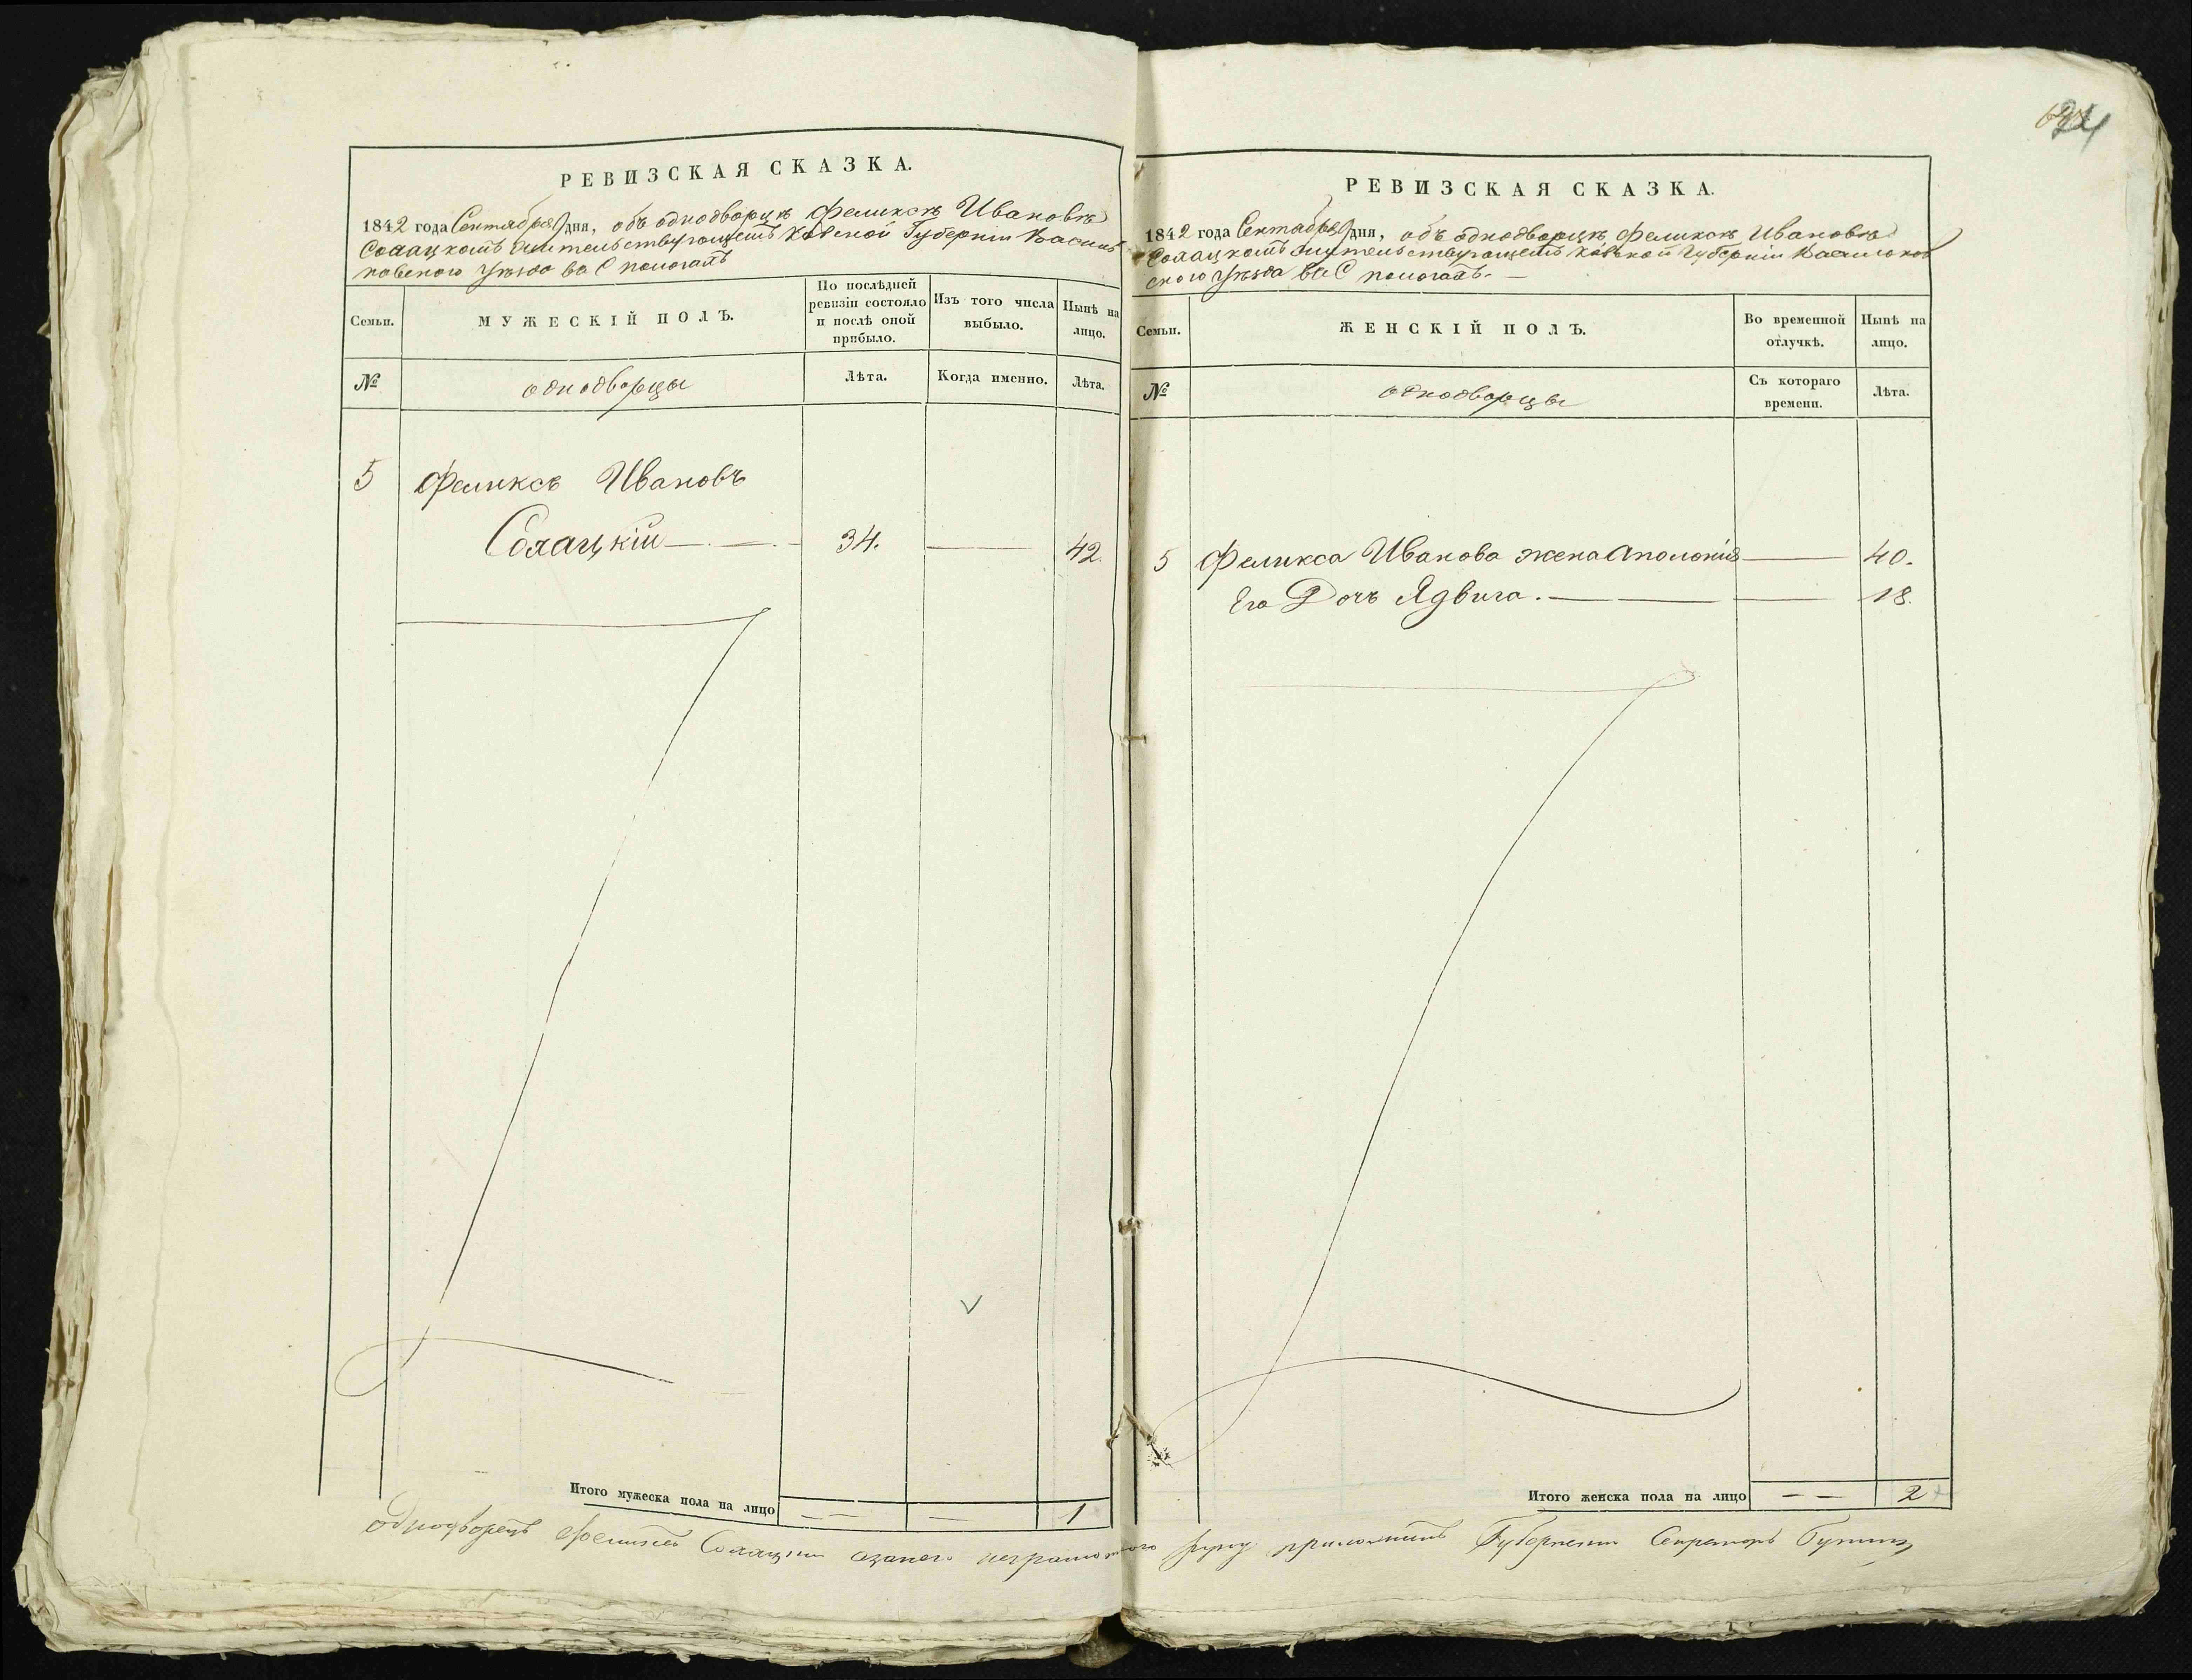 РЕВИЗСКАЯ СКАЗКА.
1842 года Сентября дня, объ однодворцѣ Феликсѣ Ивановѣ
жительствующемъ Кіевской Губерніи Василь
ковского уѣзда
Семьи.
МУЖЕСКІЙ ПОЛЪ.
По послѣдней
ревизіи состояло
и послѣ оной
прибыло.
Изъ того числа
выбыло.
Нынѣ на
лицо.
№
однодворцы
Лѣта.
Когда именно.
Лѣта.
5 Феликсъ Ивановъ
Солацкій 34. 42.
Итого мужеска пола на лицо 1
РЕВИЗСКАЯ СКАЗКА.
1842 года Сентября дня, объ однодворцѣ Феликсѣ Ивановѣ
жительствующемъ Кіевской Губерніи Васильков
ского уѣзда
Семьи.
ЖЕНСКІЙ ПОЛЪ.
Во временной
отлучкѣ.
Нынѣ на
лицо.
№
однодворцы
Съ котораго
времени.
Лѣта.
5 Феликса Иванова жена Аполонія 40.
Его Дочь Ядвига. 18.
Итого женска пола на лицо 2
Однодворецъ Феликсъ Солацкій азанего неграмотного руку приложилъ Губернскій Секретарь